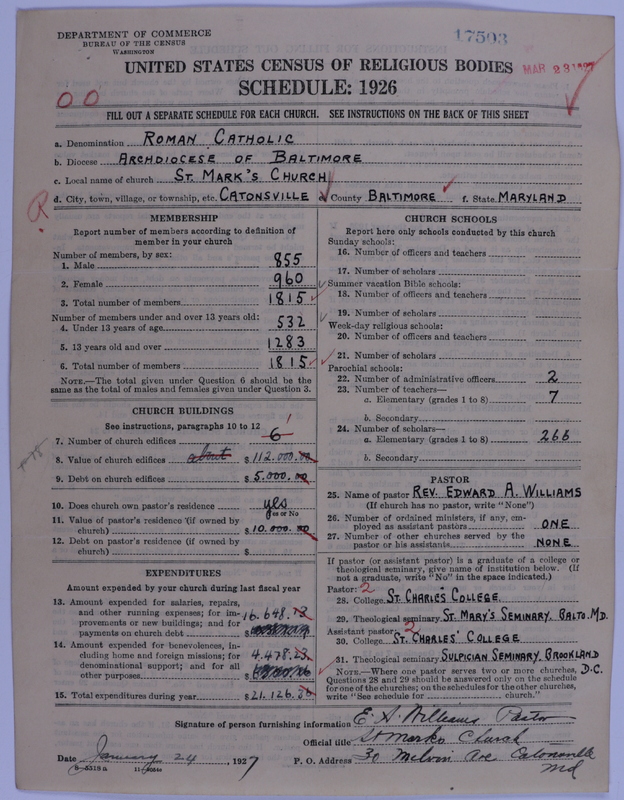 DEPARTMENT OF COMMERCE
BUREAU OF THE CENSUS
WASHINGTON
17593
UNITED STATES CENSUS OF RELIGIOUS BODIES
MAR 23 192
SCHEDULE: 1926
OO
FILL OUT A SEPARATE SCHEDULE FOR EACH CHURCH. SEE INSTRUCTIONS ON THE BACK OF THIS SHEET
a. Denomination ROMAN CATHOLIC
b. Diocese ARCHDIOCESE OF BALTIMORE
c. Local name of church ST. MARK'S CHURCH
d. City, town, village, or township, etc. CATONSVILLE e. County BALTIMORE f. State MARYLAND
R
MEMBERSHIP
Report number of members according to definition of
member in your church
Number of members, by sex:
1. Male 855
2. Female 960
3. Total number of members 1815
Number of members under and over 13 years old:
4. Under 13 years of age 532
5. 13 years old and over 1283
6. Total number of members 1815
NOTE.—The total given under Question 6 should be the
same as the total of males and females given under Question 3.
CHURCH BUILDINGS
See instructions, paragraphs 10 to 12
7. Number of church edifices 6 1
8. Value of church edifices about $112.000.00
9. Debt on church edifices $5.000.00
10. Does church own pastor's residence yes
Yes or No
11. Value of pastor's residence (if owned by
church) $10.000.00
12. Debt on pastor's residence (if owned by
church) $
EXPENDITURES
Amount expended by your church during last fiscal year
13. Amount expended for salaries, repairs,
and other running expenses; for im-
provements or new buildings; and for
payments on church debt 16.648.13
$
14. Amount expended for benevolences, in-
cluding home and foreign missions; for
denominational support; and for all
other purposes 4.478.23
$
15. Total expenditures during year $21,126.36
CHURCH SCHOOLS
Report here only schools conducted by this church
Sunday schools:
16. Number of officers and teachers
17. Number of scholars
Summer vacation Bible schools:
18. Number of officers and teachers
19. Number of scholars
Week-day religious schools:
20. Number of officers and teachers
21. Number of scholars
Parochial schools:
22. Number of administrative officers 2
23. Number of teachers—
a. Elementary (grades 1 to 8) 7
b. Secondary
24. Number of scholars—
a. Elementary (grades 1 to 8) 266
b. Secondary
PASTOR
25. Name of pastor REV. EDWARD A. WILLIAMS
(If church has no pastor, write "None")
26. Number of ordained ministers, if any, em-
ployed as assistant pastors ONE
27. Number of other churches served by the
pastor or his assistants NONE
If pastor (or assistant pastor) is a graduate of a college or
theological seminary, give name of institution below. (If
not a graduate, write "No" in the space indicated.)
Pastor: 2
28. College ST. CHARLES COLLEGE
29. Theological seminary ST. MARY'S SEMINARY. BALTO. MD.
Assistant pastor: 2
30. College ST. CHARLES' COLLEGE
31. Theological seminary SULPICIAN SEMINARY. BROOKLAND
D.C.
NOTE.—Where one pastor serves two or more churches,
Questions 28 and 29 should be answered only on the schedule
for one of the churches; on the schedules for the other churches,
write "See schedule for church."
Signature of person furnishing information E. A. Williams Pastor
Official title St Marks Church
Date January 24, 1927 P. O. Address 30 Melvin Ave Catonsville
Md